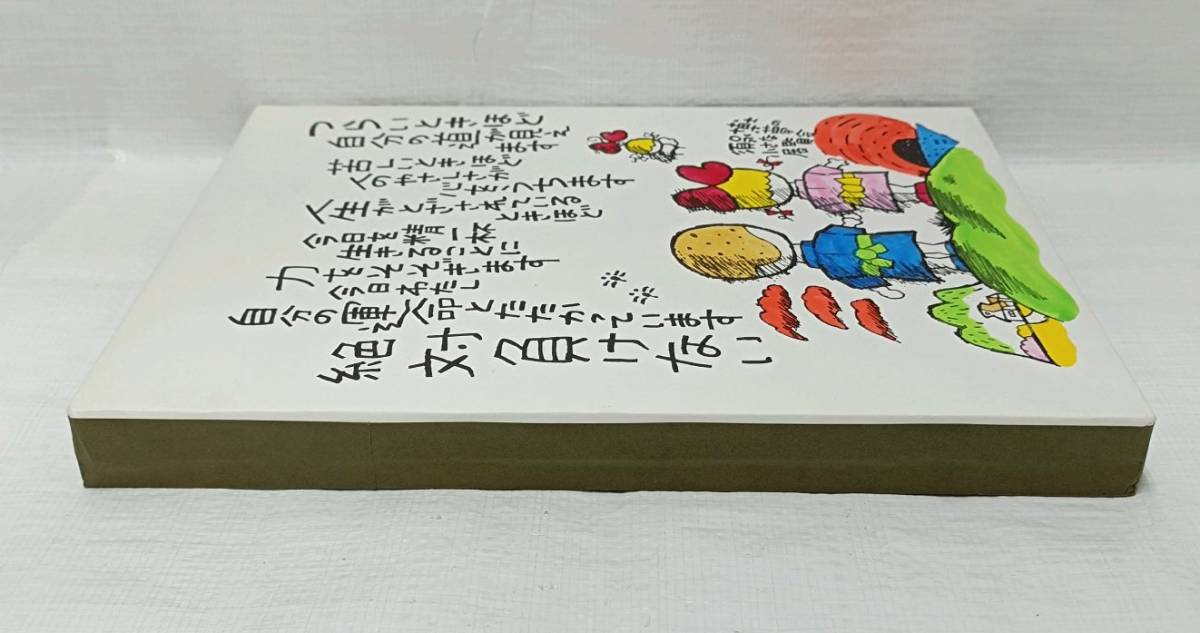 つらいときほど
自分の道が見え
ます
苦しいときほど
人のやさしさが
心をうちます
人生がとざされている
ときほど
今日を精一杯
生きることに
力をそそぎます
今日わたし
自分の運命とたたかっています
絶対負けない